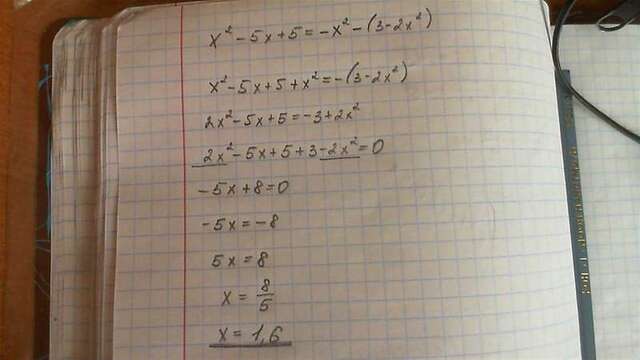 x² - 5x + 5 = -x² - (3 - 2x²)
x² - 5x + 5 + x² = -(3 - 2x²)
2x² - 5x + 5 = -3 + 2x²
2x² - 5x + 5 + 3 - 2x² = 0
-5x + 8 = 0
-5x = -8
5x = 8
x = 8/5
x = 1,6